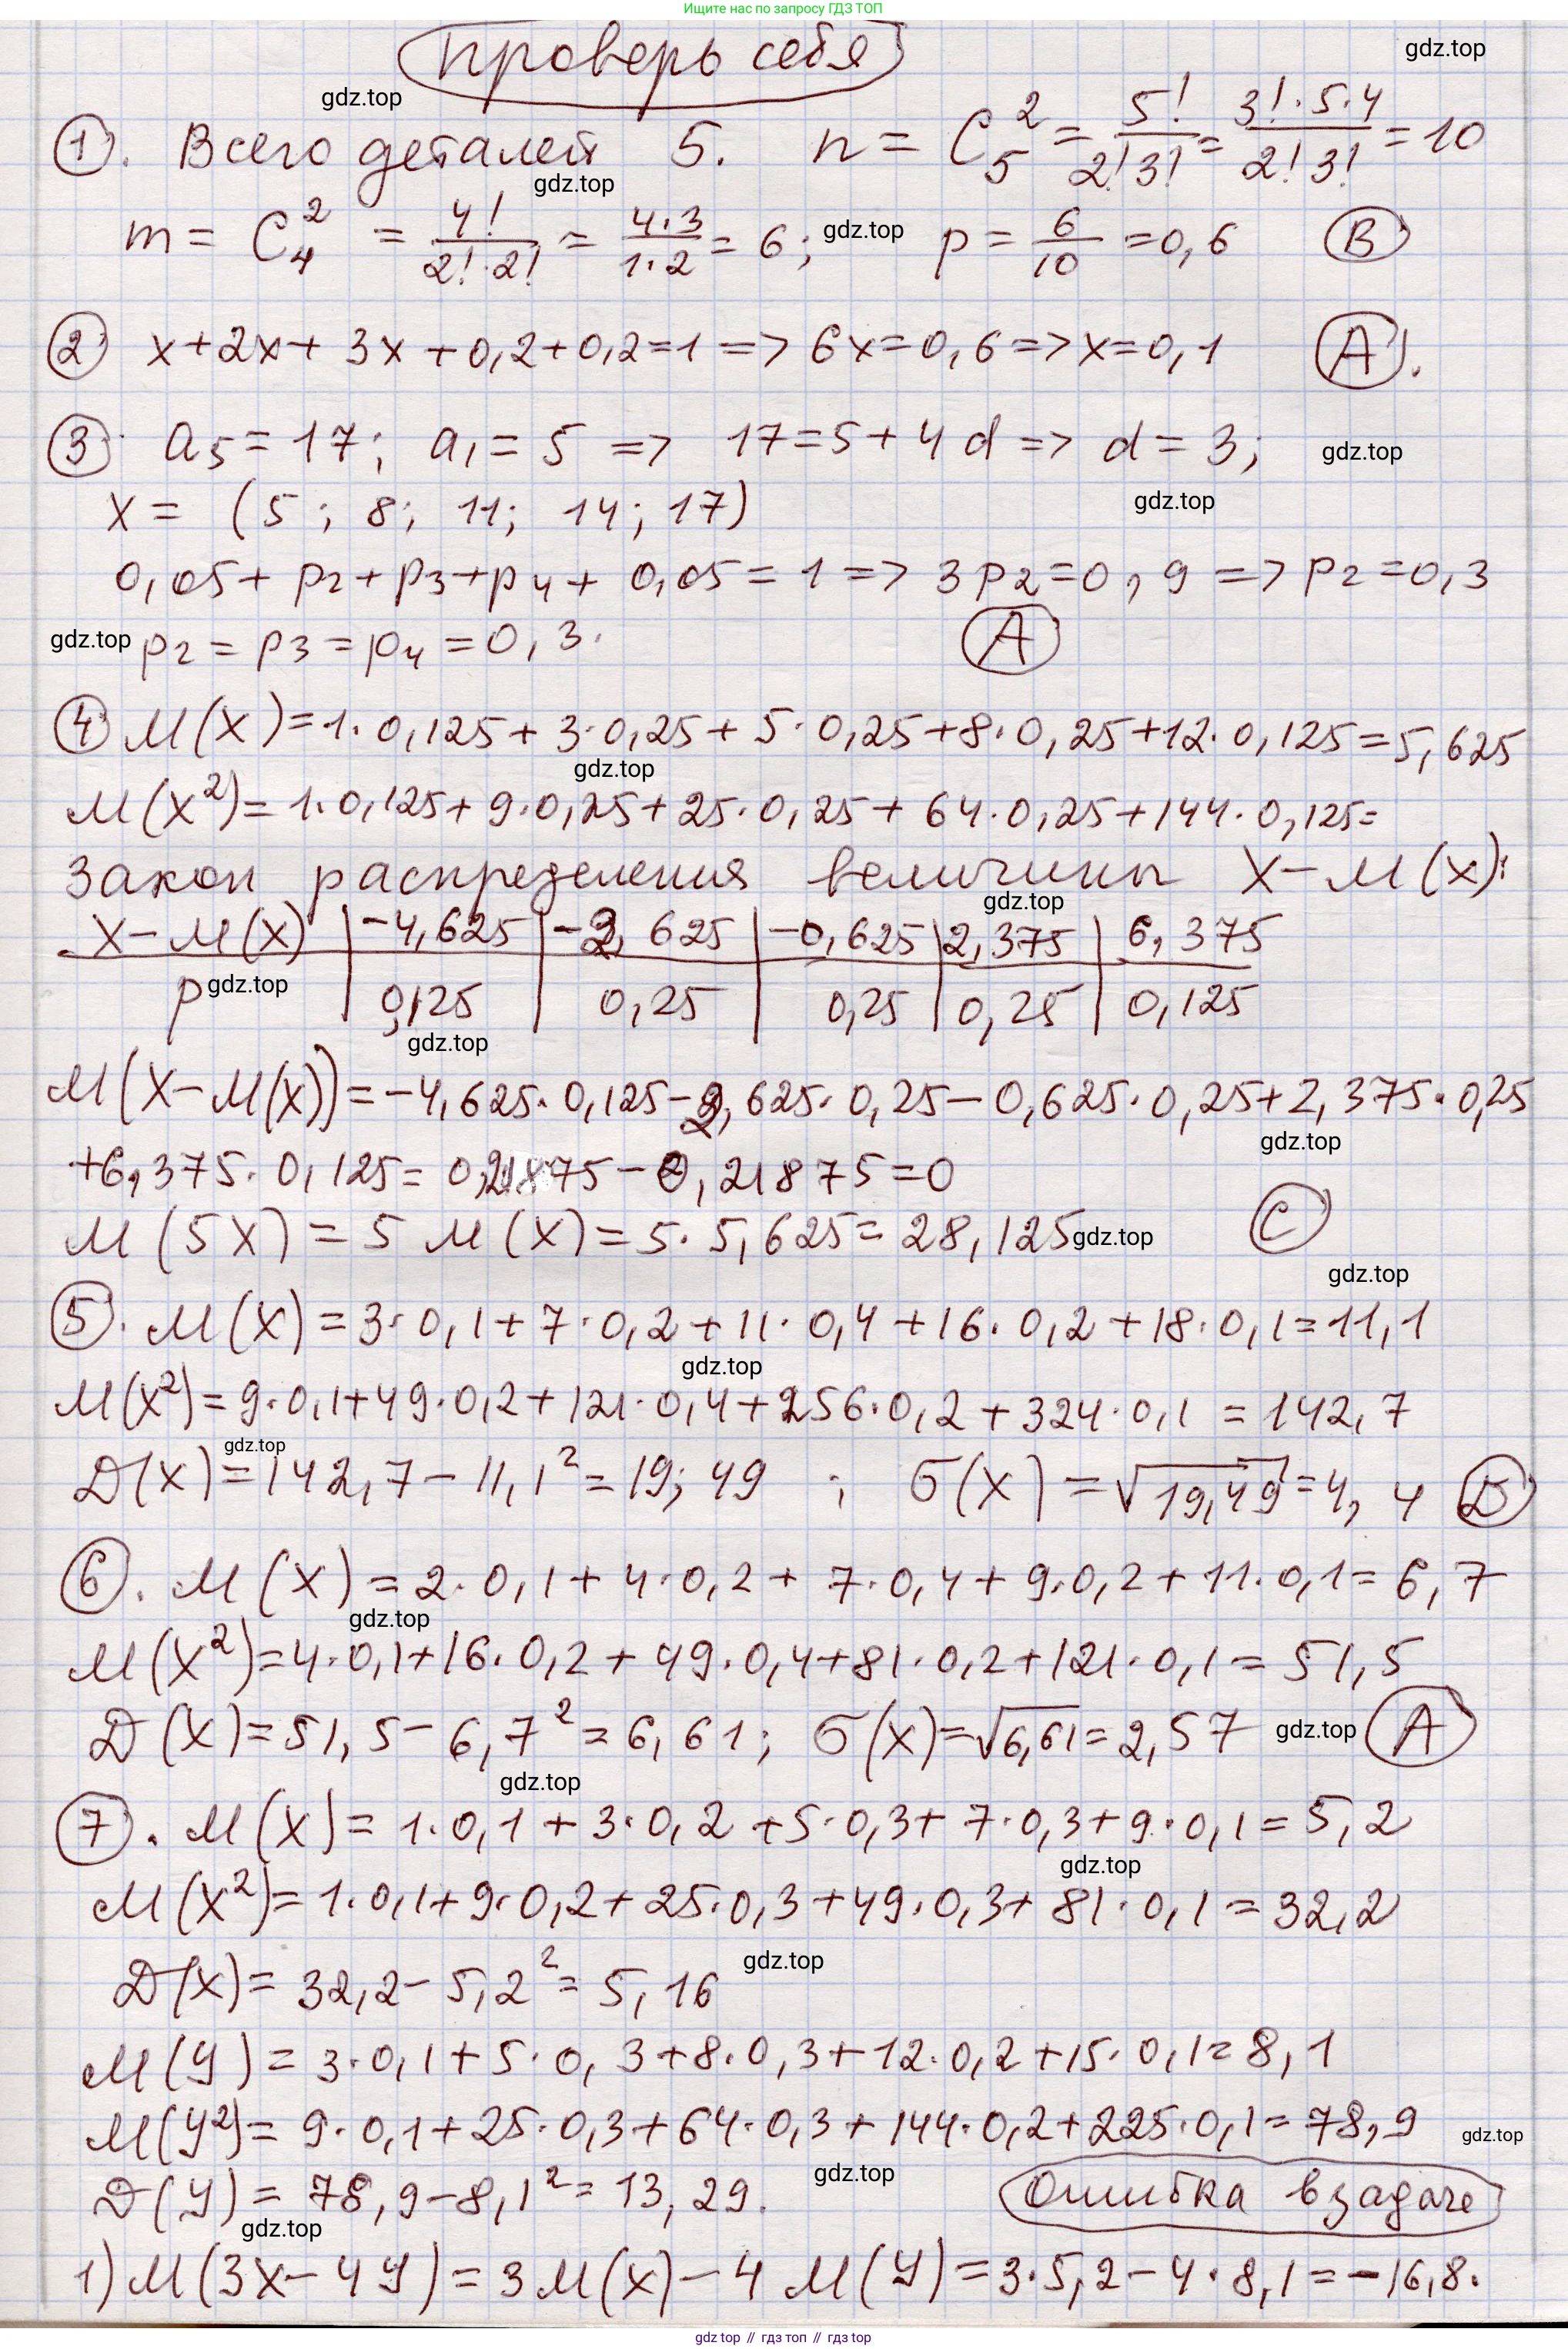 Ищите нас по запросу ГДЗ ТОП
Проверь себя
gdz.top
gdz.top
1. Всего деталей 5. n = C₅² = 5!/(2!3!) = (3!·5·4)/(2!3!) = 10
gdz.top
m = C₄² = 4!/(2!·2!) = (4·3)/(1·2) = 6; gdz.top p = 6/10 = 0,6 (B)
2 x+2x+3x+0,2+0,2=1 => 6x=0,6 => x=0,1 (A).
3 a₅=17; a₁=5 => 17=5+4d => d=3; gdz.top
x = (5; 8; 11; 14; 17) gdz.top
0,05+p₂+p₃+p₄+0,05=1 => 3p₂=0,9 => p₂=0,3
gdz.top p₂=p₃=p₄=0,3. (A)
4 M(X)=1·0,125+3·0,25+5·0,25+8·0,25+12·0,125=5,625
gdz.top
M(X²)=1·0,125+9·0,25+25·0,25+64·0,25+144·0,125=
Закон распределения величины X-M(x):
gdz.top
X-M(X) | -4,625 | -2,625 | -0,625 | 2,375 | 6,375
p | 0,125 | 0,25 | 0,25 | 0,25 | 0,125
gdz.top
gdz.top
M(X-M(X))=-4,625·0,125-2,625·0,25-0,625·0,25+2,375·0,25
gdz.top
+6,375·0,125=0,21875-0,21875=0
M(5X)=5M(X)=5·5,625=28,125 gdz.top (C)
gdz.top
5. M(X)=3·0,1+7·0,2+11·0,4+16·0,2+18·0,1=11,1
gdz.top
M(X²)=9·0,1+49·0,2+121·0,4+256·0,2+324·0,1=142,7
gdz.top
D(X)=142,7-11,1²=19,49; σ(X)=√19,49=4,4 (D)
6. M(X)=2·0,1+4·0,2+7·0,4+9·0,2+11·0,1=6,7
gdz.top
M(X²)=4·0,1+16·0,2+49·0,4+81·0,2+121·0,1=51,5
D(X)=51,5-6,7²=6,61; σ(X)=√6,61=2,57 gdz.top (A)
gdz.top
7. M(X)=1·0,1+3·0,2+5·0,3+7·0,3+9·0,1=5,2
gdz.top
M(X²)=1·0,1+9·0,2+25·0,3+49·0,3+81·0,1=32,2
gdz.top
D(X)=32,2-5,2²=5,16
M(Y)=3·0,1+5·0,3+8·0,3+12·0,2+15·0,1=8,1
M(Y²)=9·0,1+25·0,3+64·0,3+144·0,2+225·0,1=78,9
gdz.top
gdz.top
D(Y)=78,9-8,1²=13,29. Ошибка в задаче
gdz.top
1) M(3X-4Y)=3M(X)-4M(Y)=3·5,2-4·8,1=-16,8.
gdz.top // гдз топ // гдз.top